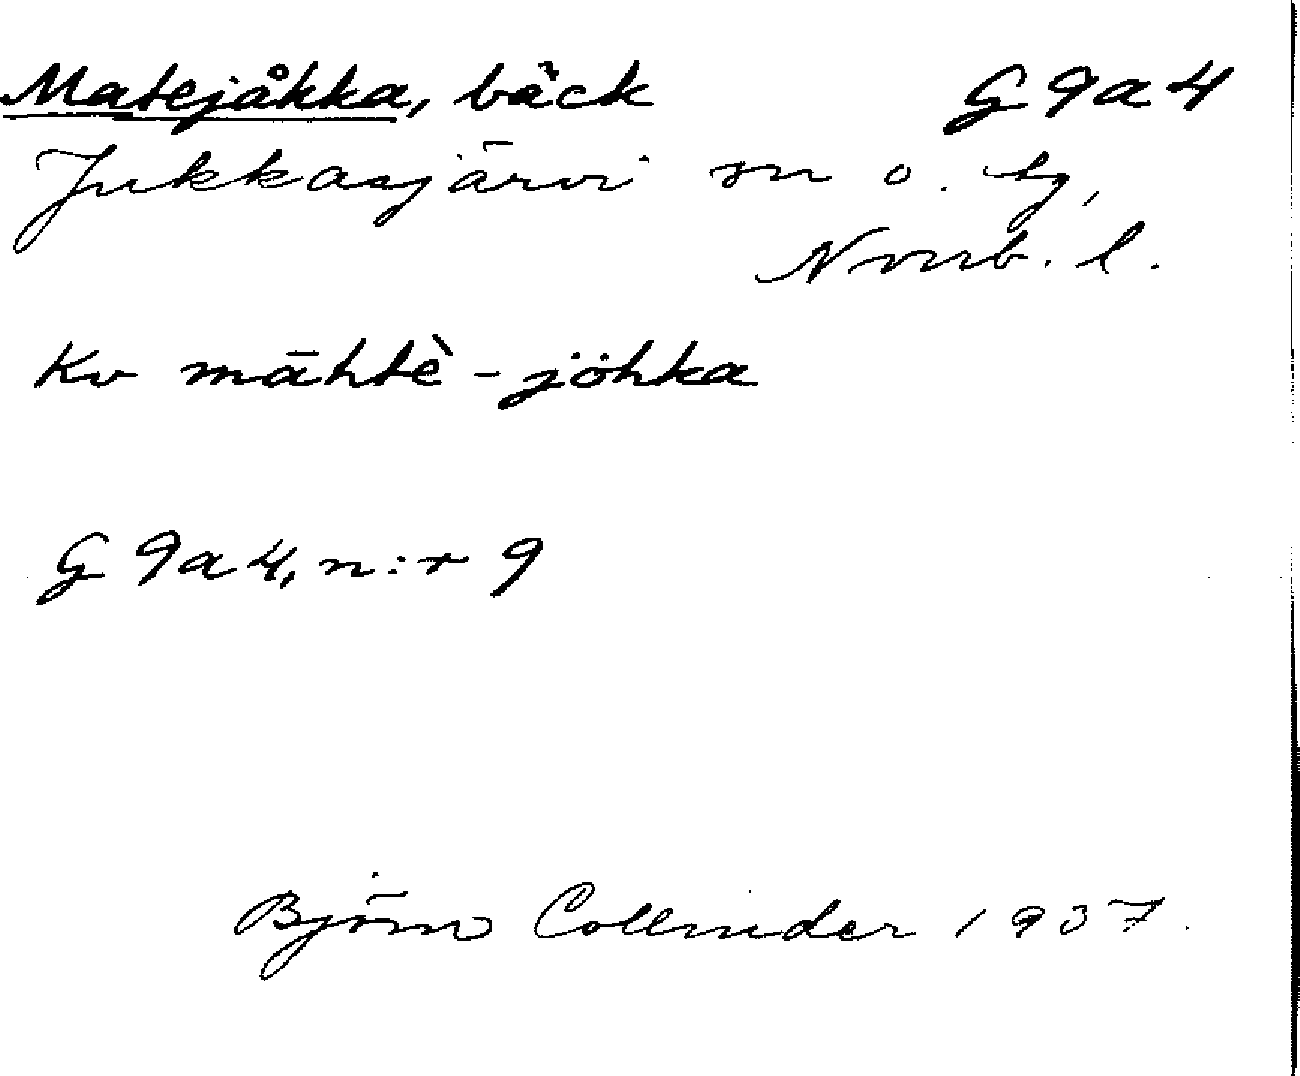 Matejåkka, bäck G 9a4
Jukkasjärvi sn o. tg,
Norrb. l.
Kv māhtè-jöhka
G 9a4, n:r 9
Björn Collinder 1937.